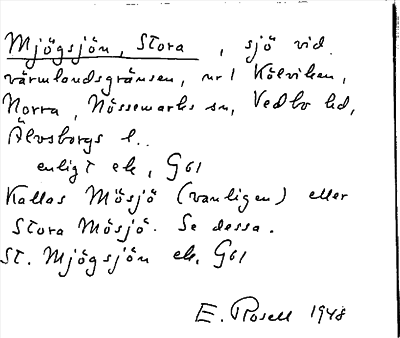 Mjögsjön, Stora, sjö vid
värmlandsgränsen, nr 1 Kölviken,
Norra, Nössemarks sn, Vedbo hd,
Älvsborgs l..
enligt ek, G61
Kallas Mösjö (vanligen) eller
Stora Mösjö. Se dessa.
St. Mjögsjön ek. G61
E. Rosell 1948